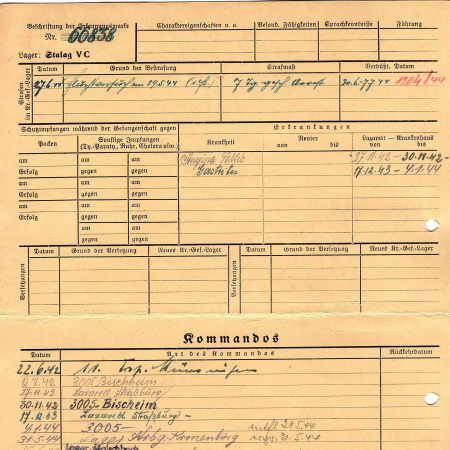 Beschriftung der Erkennungsmarke Charaktereigenschaften u. a. Besond. Fähigkeiten Sprachkenntnisse Führung
Nr. 60838
Lager: Stalag V C
Strafen im Kr.-Gef.-Lager
Datum Grund der Bestrafung Strafmaß Verbüßt, Datum
27.6.44 Fluchtversuch am 29.5.44 7 Tg. gesch. Arrest 30.6.-7.7.44 1204/44
Schutzimpfungen während der Gefangenschaft gegen Erkrankungen
Pocken Sonstige Impfungen (Ty.-Paraty., Ruhr, Cholera usw.) Krankheit Revier von bis Lazarett – Krankenhaus von bis
am am Angina 27.11.42 - 30.11.42 -
Erfolg gegen Gastritis 17.12.43 - 4.1.44
am am
Erfolg gegen
am am
Erfolg gegen
am
gegen
Versetzungen
Datum Grund der Versetzung Neues Kr.-Gef.-Lager Versetzungen Datum Grund der Versetzung Neues Kr.-Gef.-Lager
Kommandos
Datum Art des Kommandos Rückkehrdatum
22.6.42 11. Trsp.
3005 Bischheim
27.11.42 Lazarett Straßburg
30.11.42 3005 Bischeim
17.12.43 Lazarett Straßburg -
4.1.44 3005 - 29.5.44
31.5.44 Lager Strbg.-Kronenburg 31.5.44